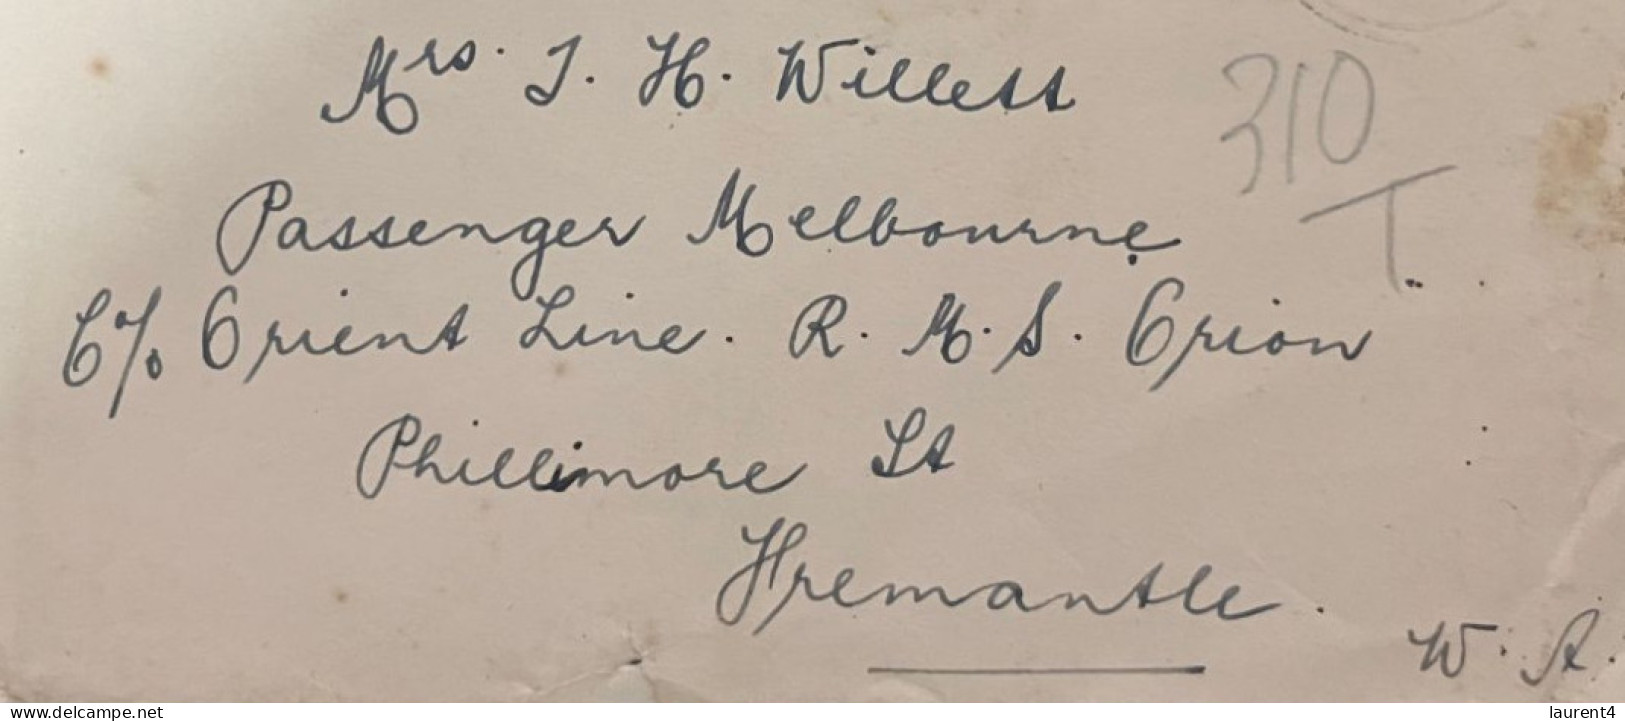 Mrs. J. H. Willett
310
T
Passenger Melbourne
C/o Orient Line. R. M. S. Orion
Phillimore St
Fremantle.
W. A.
www.delcampe.net
laurent4